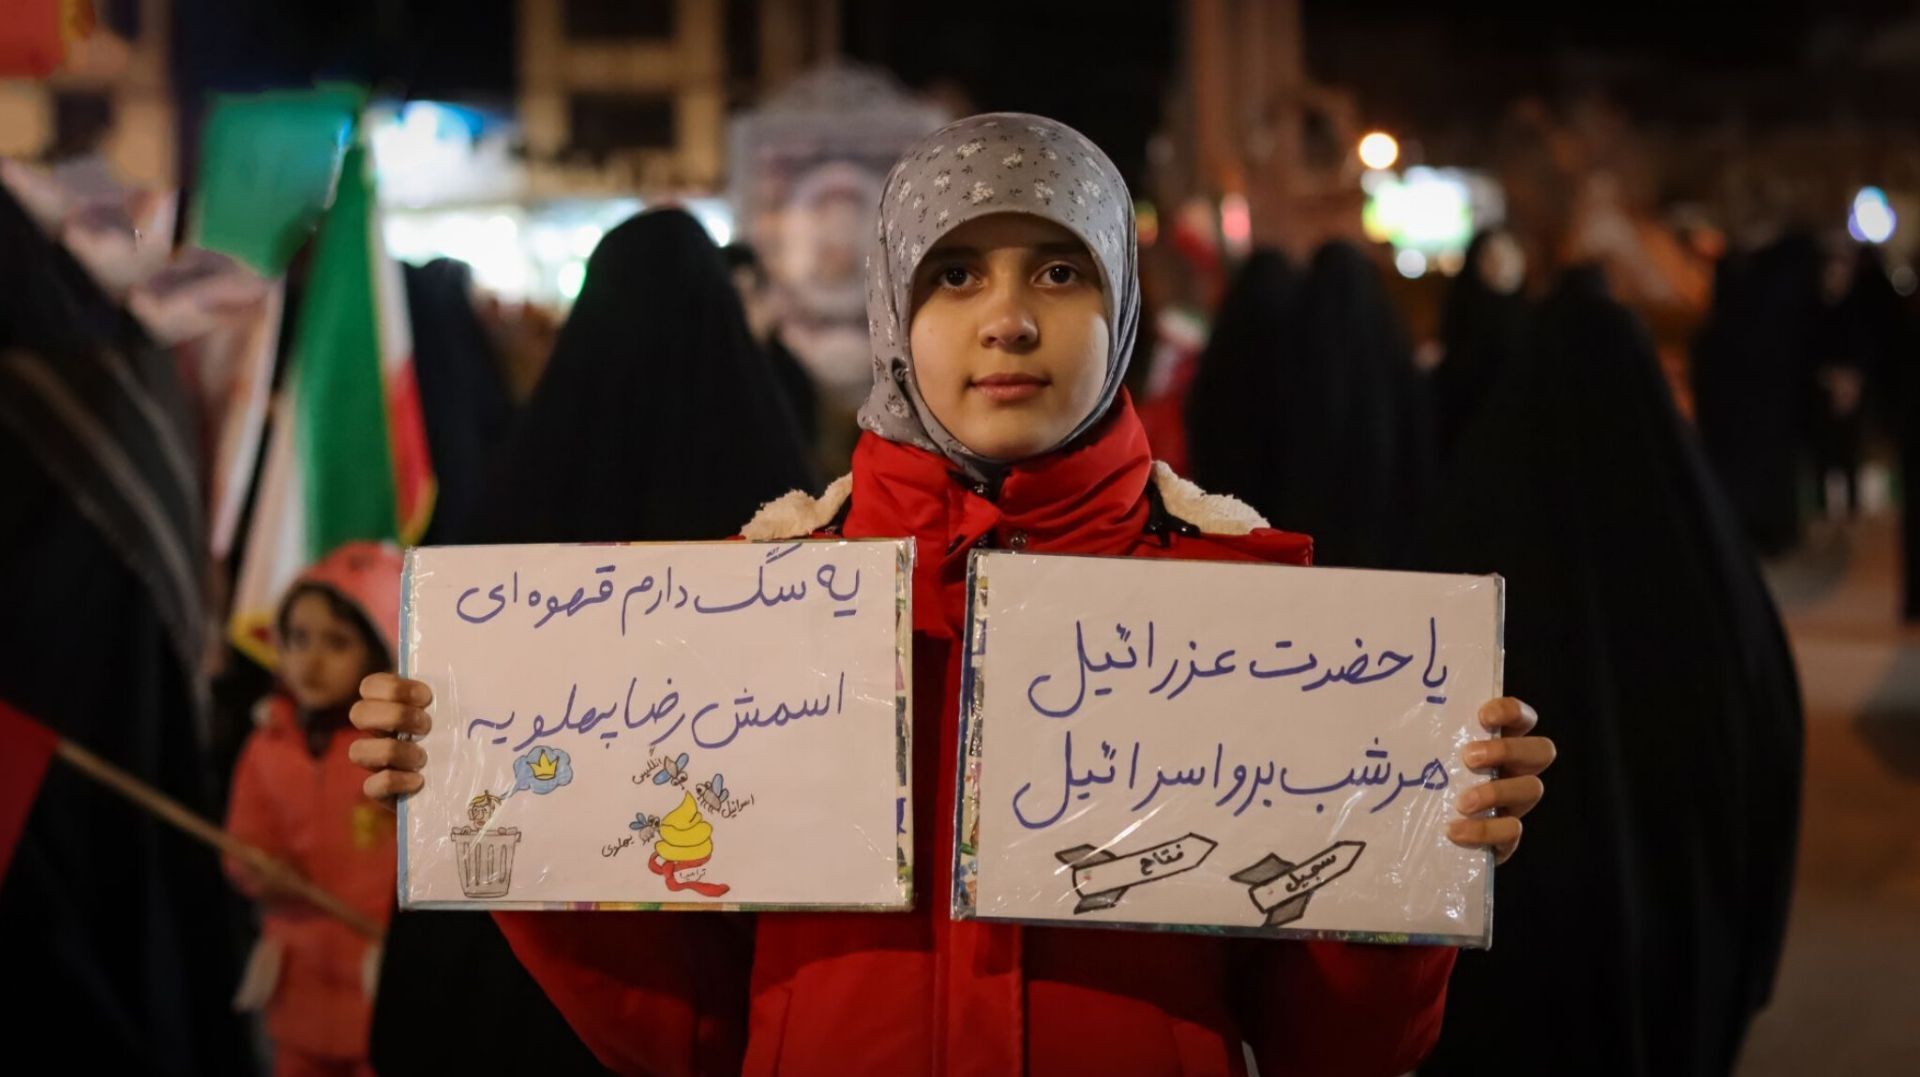 یه سگ دارم قهوه ای
اسمش رضا پهلویه
انگلیس
اسرائیل
پهلوی
ترامپ
یا حضرت عزرائیل
هر شب برو اسرائیل
فتاح
سجیل